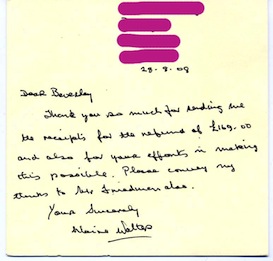 28.8.09
Dear Beverley
Thank you so much for sending me
the receipts for the refund of £169.00
and also for your efforts in making
this possible. Please convey my
thanks to Mr Freedman also.
Yours Sincerely
Elaine Walter